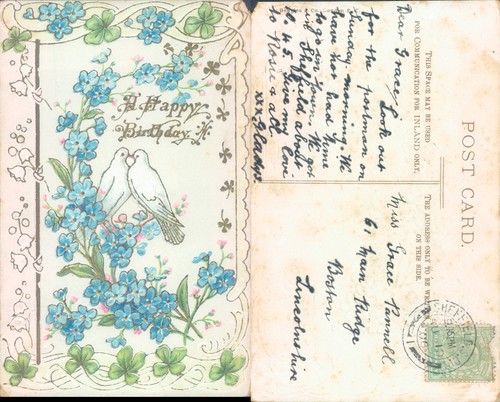 A Happy
Birthday
THIS SPACE MAY BE USED
FOR COMMUNICATION FOR INLAND ONLY.
POST CARD.
THE ADDRESS ONLY TO BE WRITTEN
ON THIS SIDE.
Dear Grace, Look out
for the postman on
Sunday morning. We
have not had time
to go on town. We got
in Sheffield about
10.45. Give my love
to Rosie & all.
xx Gladys.
Miss Grace Pannell
61 Main Ridge
Boston
Lincolnshire
SHEFFIELD